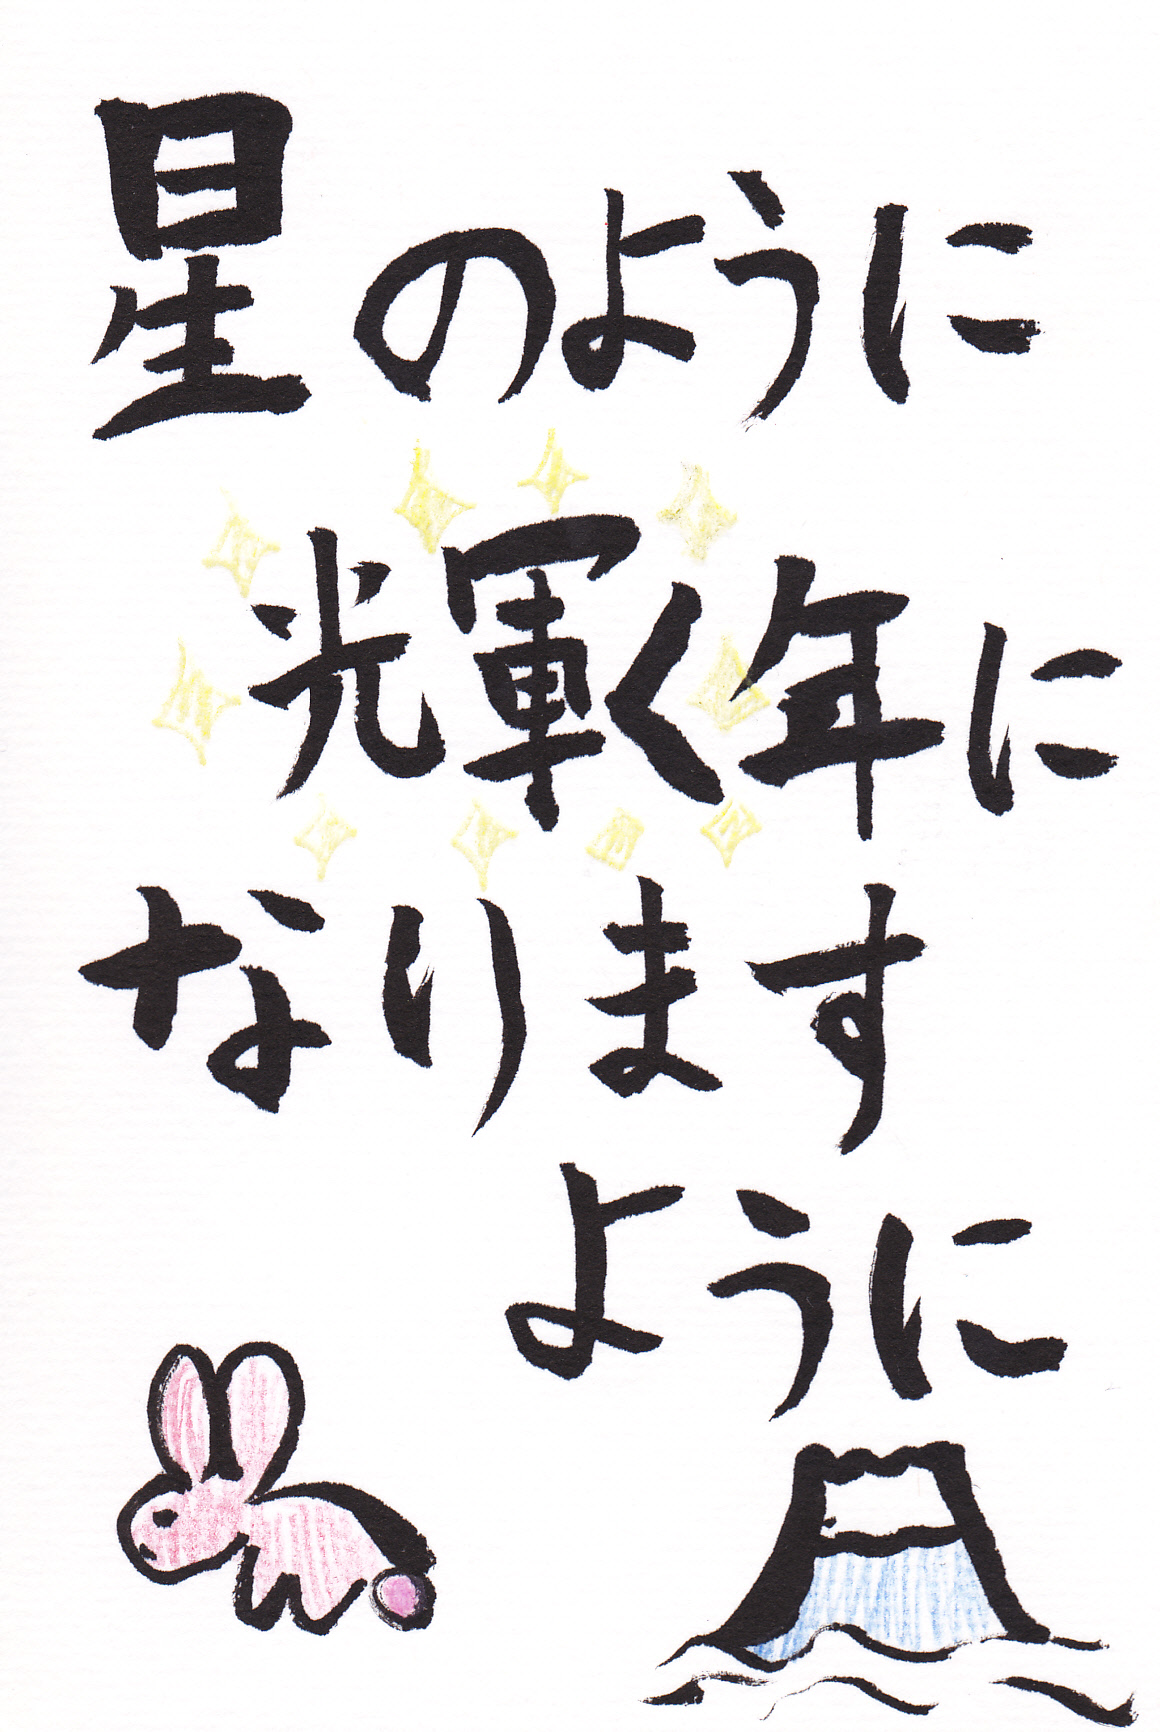 星のように
輝く年に
なります
ように